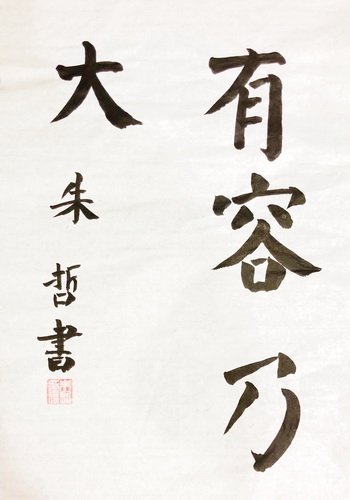 有容乃
大
朱哲書